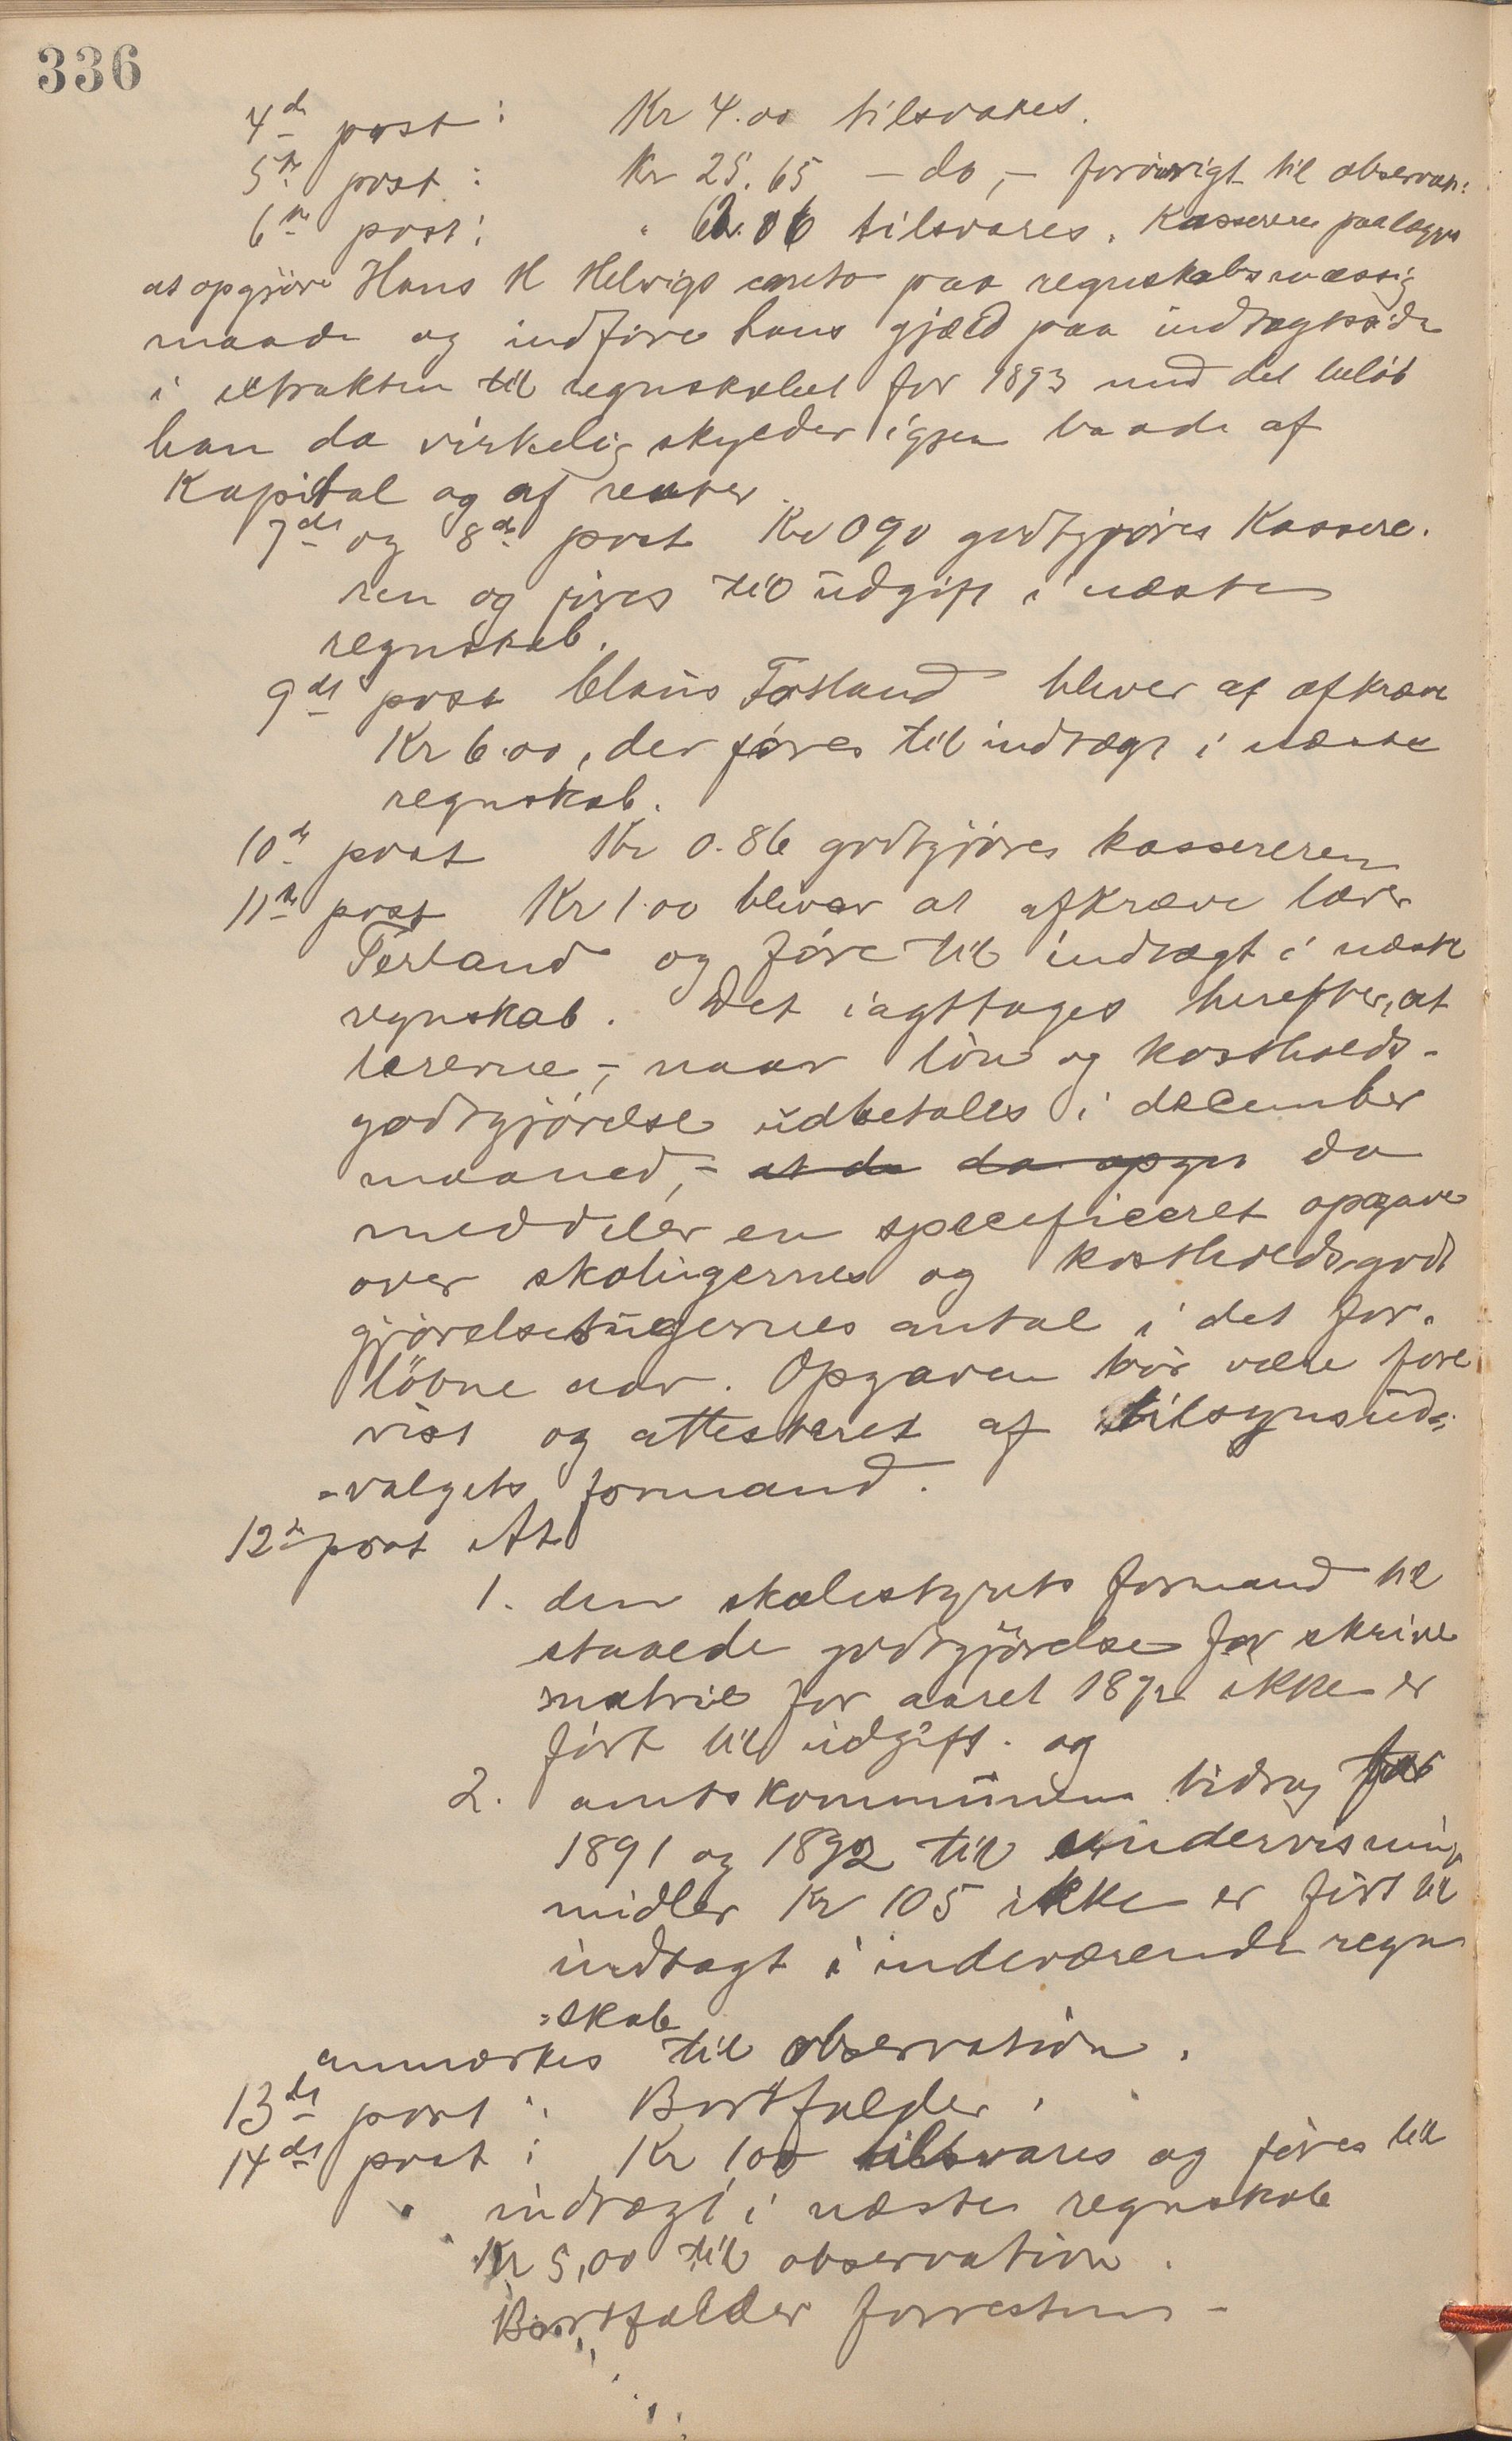 336
4de post: Kr 4.00 tilsvares.
5te post: Kr 25.65 - do, - forövrigt til observan:
6te post: " 62.06 tilsvares. Kassereren paalægges
at opgjöre Hans H Helvigs conto paa regnskabsmæssig
maade og indföre hans gjæld paa indtægtside
i extrakten til regnskabet for 1893 med det belöb
han da virkelig skylder igjen baade af
Kapital og af renter.
7de og 8de post Kr 0 90 godtgjöres Kassere.
ren og föres til udgift i næste
regnskab.
9de post Claus Fosland bliver at afkræve
Kr 6.00, der föres til indtægt i næste
regnskab.
10de post Kr 0.86 godtgjöres kassereren
11te post Kr 1.00 bliver at afkræve lærer
Terland og före til indtægt i næste
regnskab. Det iagttages herefter, at
lererne, - naar lön og kostholds-
godtgjörelse udbetales i december
maaned, - at de da opgir da
meddeler en specificeret opgave
over skolugernes og kostholdsgodt
gjörelsesugernes antal i det for.
löbne aar. Opgaven bör være fore
vist og attesteret af tilsynsud-
-valgets formand.
12te post At
1. den skolestyrets formand til
staaede godtgjörelse for skrive
matriel for aaret 1892 ikke er
fört til udgift. og
2. amtskommunens bidrag for
1891 og 1892 til undervisnings
midler Kr 105 ikke er fört til
indtægt i indeværende regn
=skab
anmærkes til observation.
13de post: Bortfalder.
14de post: Kr 1.00 tilsvares og föres til
indtægt i næste regnskab
Kr 5,00 til observation.
Bortfalder forresten -